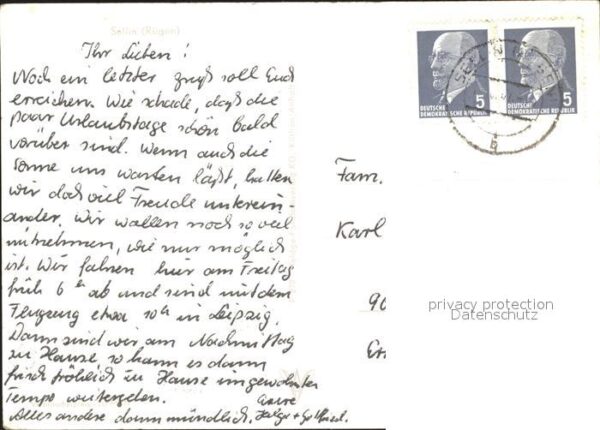 Sellin (Rügen)
Ihr Lieben!
Noch ein letzter Gruß soll Euch
erreichen. Wie schade, daß die
paar Urlaubstage schön bald
vorüber sind. Wenn auch die
Sonne uns warten läßt, hatten
wir doch viel Freude unterein-
ander. Wir wollen noch so viel
mitnehmen, wie nur möglich
ist. Wir fahren hier am Freitag
früh 6 h ab und sind mit dem
Flugzeug etwa 10 h in Leipzig.
Dann sind wir am Nachmittag
zu Hause so kann es dann
frisch fröhlich zu Hause im gewohnten
Tempo weitergehen. Eure
Alles andere dann mündlich. Helga +
DEUTSCHE
DEMOKRATISCHE REPUBLIK
5
DEUTSCHE
DEMOKRATISCHE REPUBLIK
5
Fam.
Karl
90
privacy protection
Datenschutz